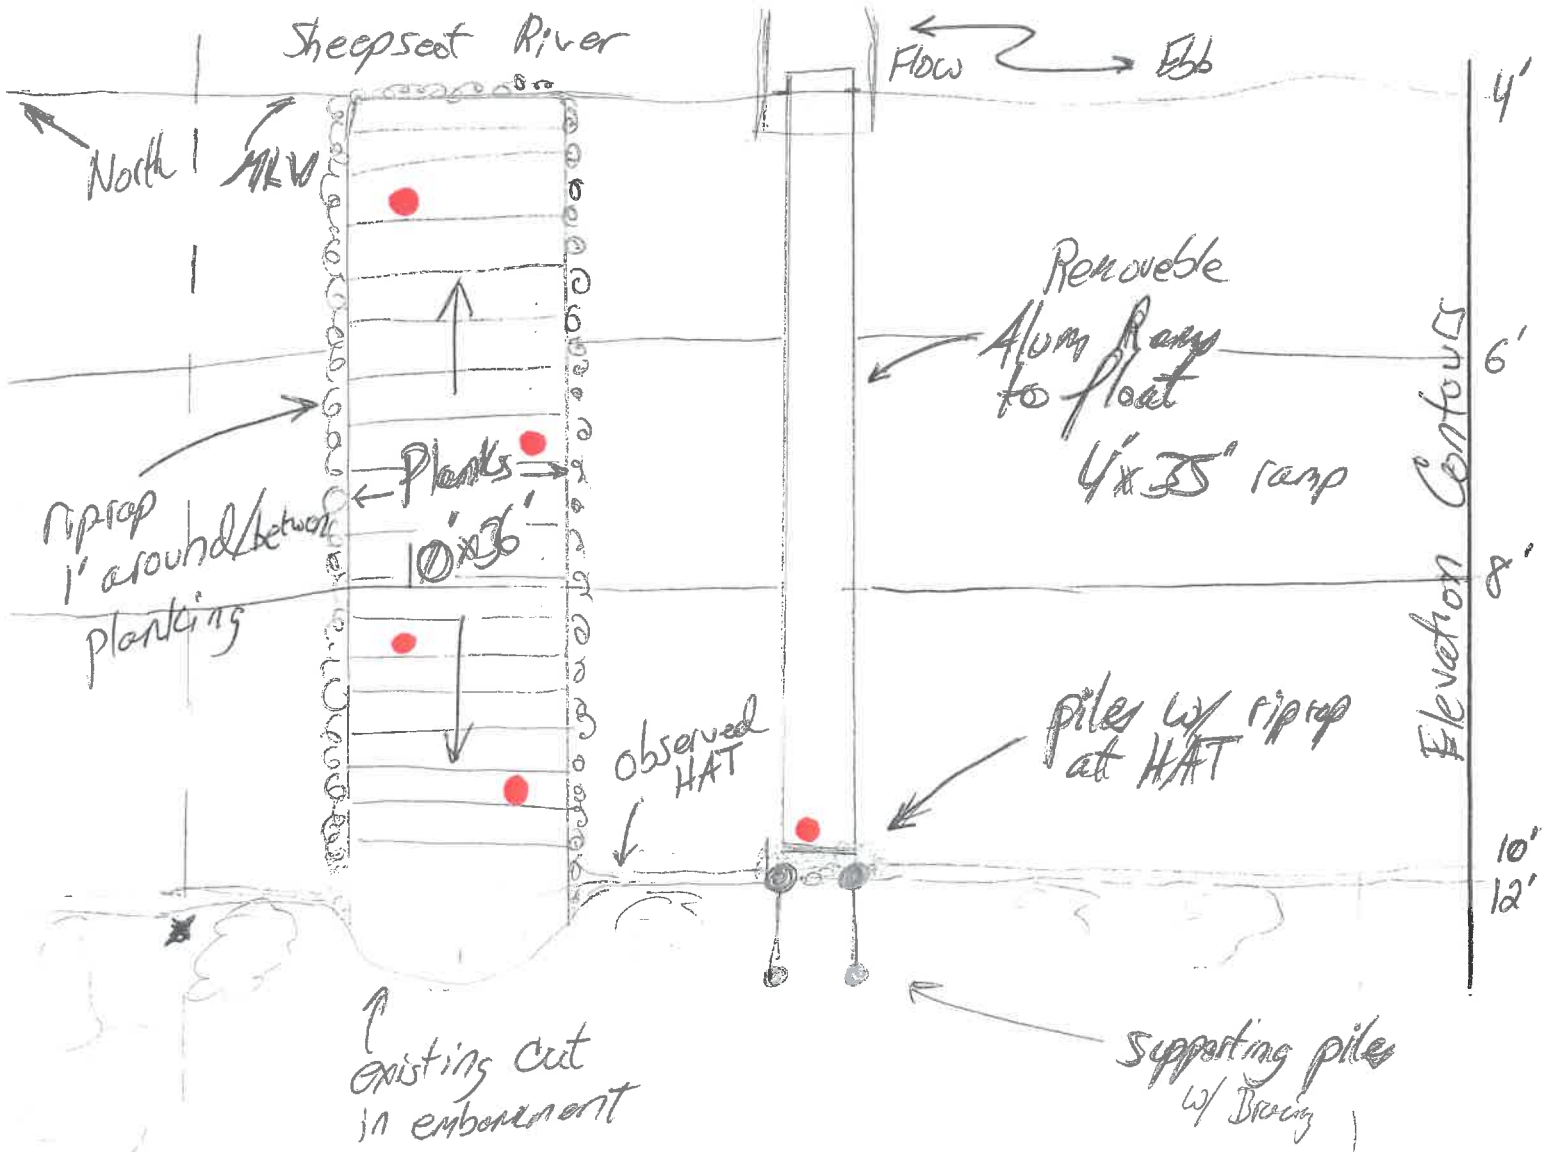 Sheepscot River
Flow
Ebb
4'
North
MLW
Removeble
Alum Ramp
to float
4' x 35' ramp
6'
Elevation Contours
riprap
1' around/between
planking
Planks
10' x 36'
8'
observed
HAT
piles w/ riprap
at HAT
10'
12'
existing cut
in embankment
supporting piles
w/ Bracing